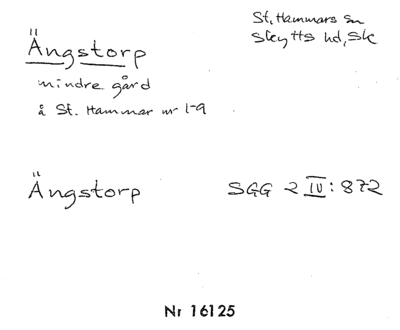 Ängstorp
St. Hammars sn
Skytts hd, Sk
mindre gård
å St. Hammar nr 1-9
Ängstorp
SGG 2 IV: 872
Nr 16125